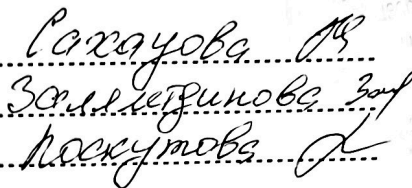 Сахауова
Залялетдинова Зал
Лоскутова